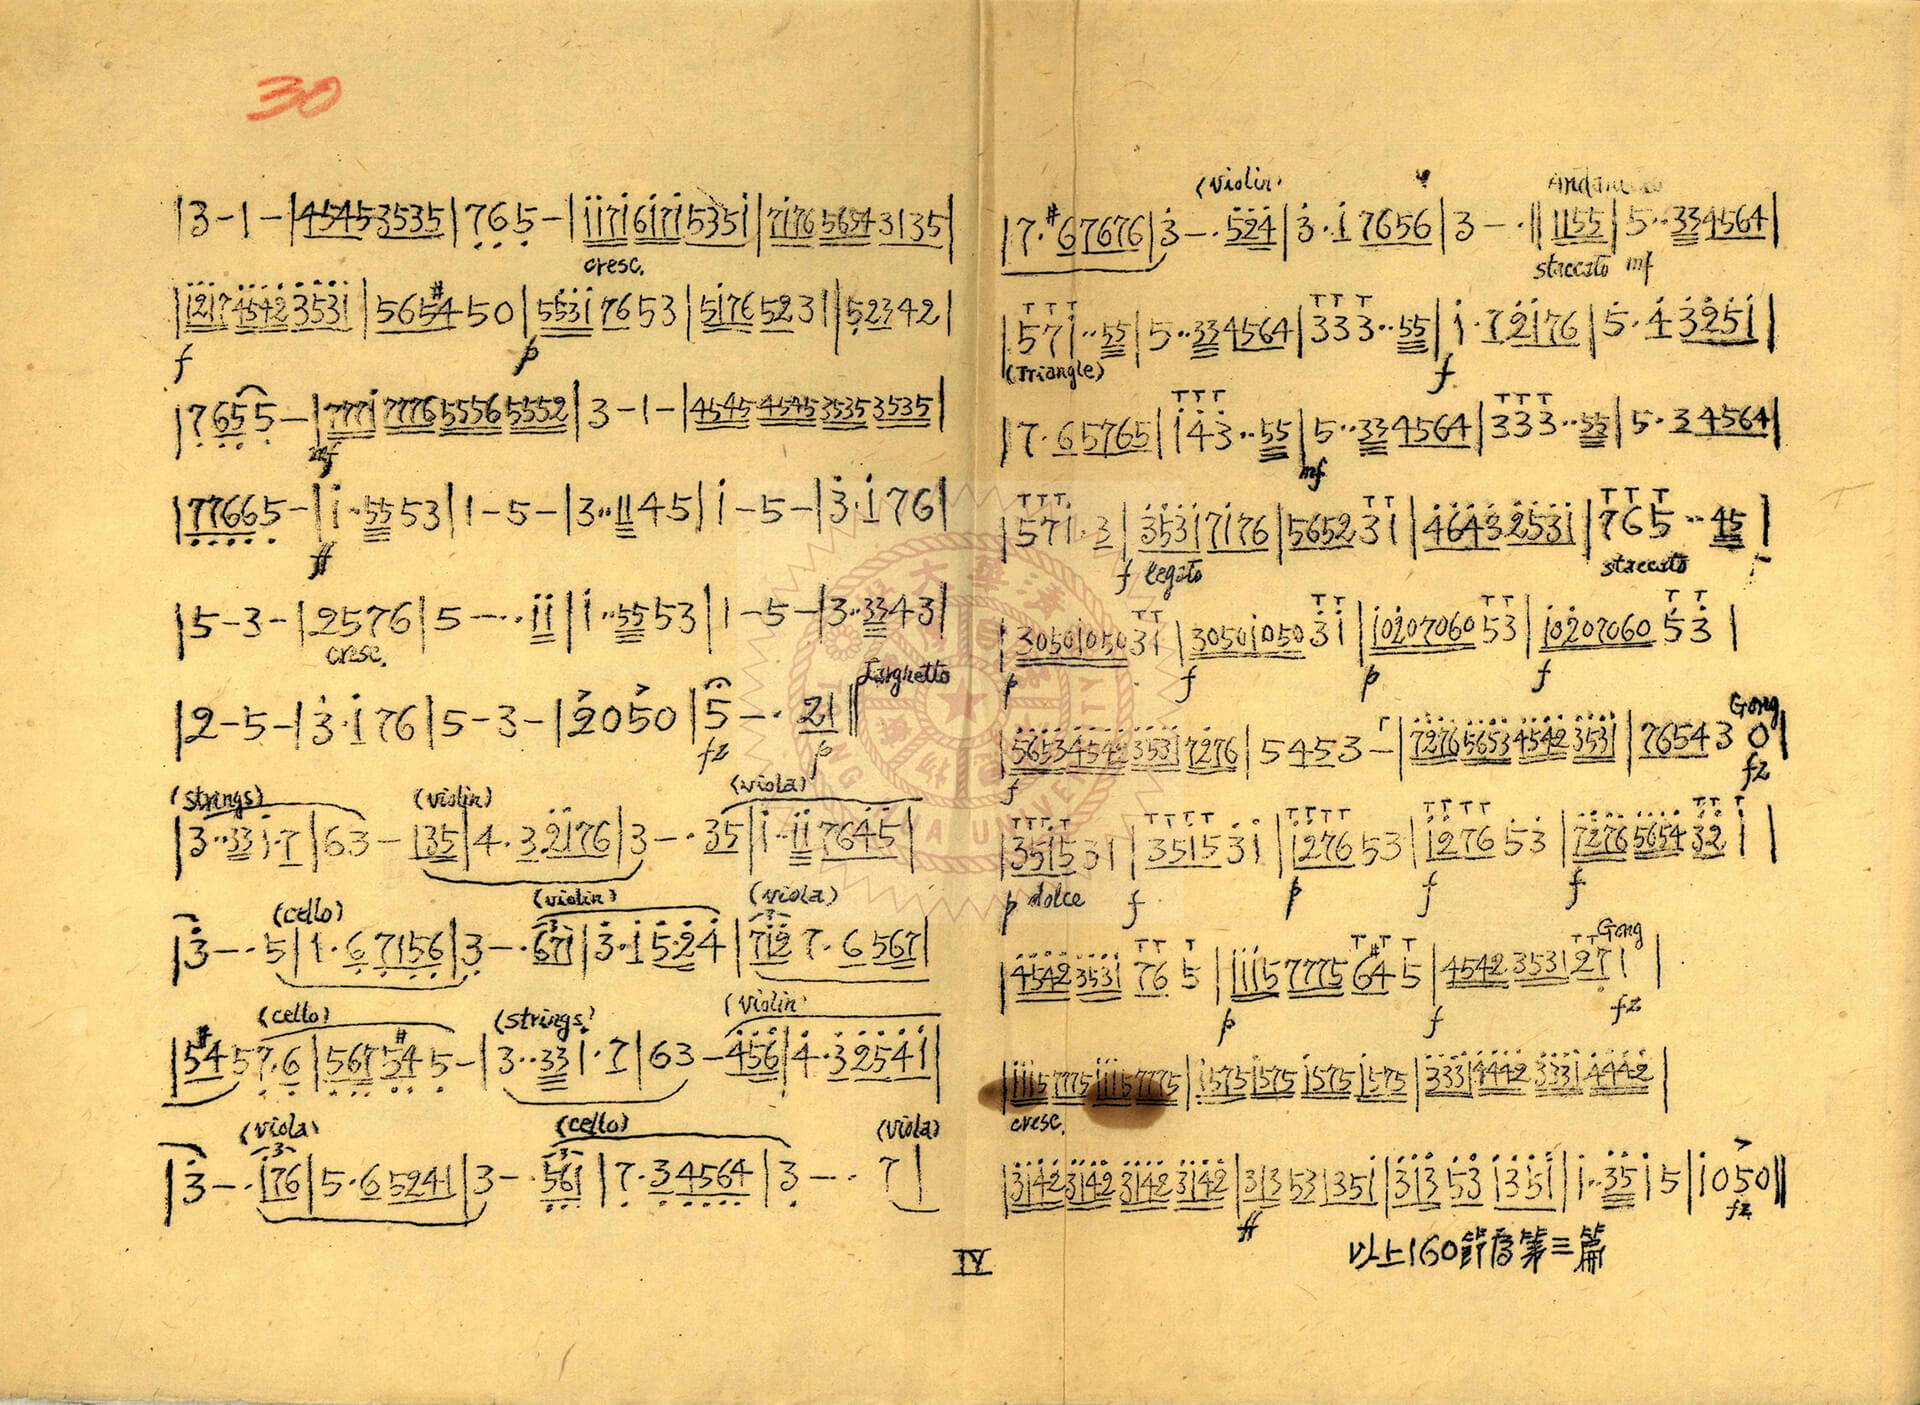 30
|3-1-|45453535|765-|i i 7 i 6 i 7 i 5 3 5 i|7 i 7 6 5 6 5 4 3 1 3 5|
cresc.
|i 2 i 7 4 5 4 2 3 5 3 i|5 6 5 #4 5 0|5 5 3 i 7 6 5 3|5 i 7 6 5 2 3 1|5 2 3 4 2|
f p
|7 6 5 5 -|7 7 7 i 7 7 7 6 5 5 5 6 5 5 5 2|3-1-|4545 4545 3535 3535|
mf
|77665-|i··5553|1-5-|3··1145|i-5-|3·i76|
ff
|5-3-|2576|5--·ii|i··5553|1-5-|3··3343|
cresc.
|2-5-|3·i76|5-3-|2050|5--·21‖ Larghetto
fz p
(strings) (violin) (viola)
|3··33i·7|63-135|4·32176|3--·35|i·ii7645|
(cello) (violin) (viola)
|3--·5|1·67156|3--·671|3·i524|712 7·6567|
(cello) (strings) (violin)
|5#457·6|5675#45-|3··331·7|63-456|4·32541|
(viola) (cello) (viola)
|3--·176|5·65241|3--·561|7·34564|3--·7|
(violin) Andantino
|7·#67676|3--·524|3·i7656|3--·‖1155|5··334564|
staccato mf
T T T T T T
|57i··55|5··334564|333··55|i·72i76|5·43251|
(Triangle) f
T T T T T T
|7·65765|143··55|5··334564|333··55|5·34564|
mf
T T T T T T T T
|57i·3|353i7i76|565231|46432531|765··45|
f legato staccato
T T T T T T T T
|3050i05031|3050i05031|i020706053|i020706053|
p f p f
Gong
|56534542353i7276|5453-|727656534542353i|765430|
f fz
T T T T T T T T T T T T T T T T T T T
|351531|351531|127653|127653|72765654321|
p dolce f p f f
T T T T T T T T Gong
|4542353i765|iii577756#45|4542353127i|
p f fz
|iii57775iii57775|i575i575i575i575|333i4442333i4442|
cresc.
|3142314231423142|313531351|31353i35i|i··35i5|i050‖
ff fz
IV
以上160節為第三篇